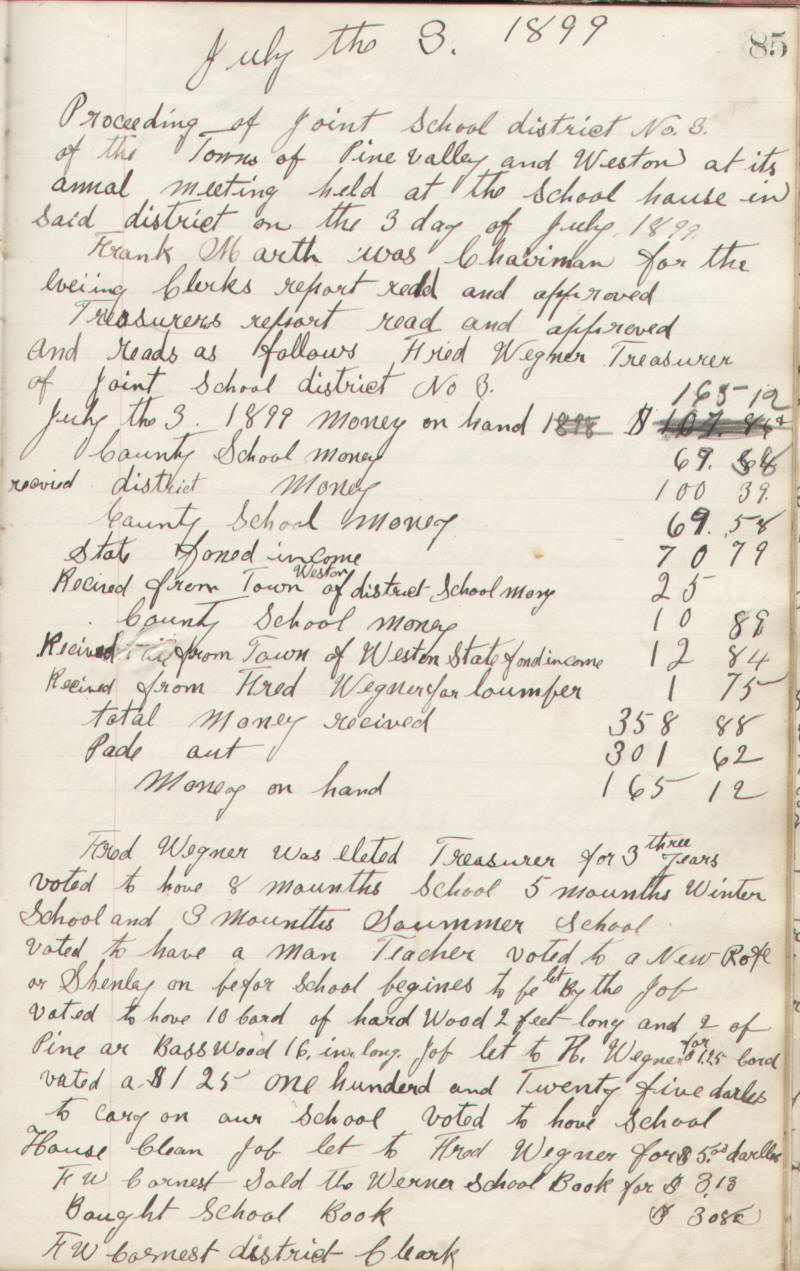 July the 3. 1899
85
Proceeding of Joint School district No. 3.
of the Towns of Pine valley and Weston at its
annal meeting held at the School house in
Said district on the 3 day of July 1899.
Frank Marth was Chairman for the
eveiing Clerks report redd and approved
Treasurers report read and approved
and reads as follows Fred Wegner Treasurer
of Joint School district No 3. 165 12
July the 3. 1899 Money on hand 1898 $ 107.
County School Money 69.
recvied district Money 100 39.
County School Money 69. 58
State foned income 70 79
Recived from Town of Weston district School mony 25
County School money 10 89
Recived from Town of Weston State fond income 12 84
Recived from Fred Wegner for loumber 1 75
total Money recived 358 88
Pade out 301 62
Money on hand 165 12
Fred Wegner was eleted Treasurer for 3 three years
voted to hove 8 mounths School 5 mounths Winter
School and 3 Mounths Soummer School
voted to have a man Teacher voted to a New
or on befor School begines to be let By the Job
voted to hove 10 Cord of hard Wood 2 feet long and 2 of
Pine ar Bass Wood 16. in. long. Job let to Wegner for $1.25 Cord
voted a $125 one hunderd and Twenty five
to cary on our School voted to hove School
House Clean Job let to Fred Wegner for $5.00
F W Cornest Sold the Werner School Book for $ 3.13
Bought School Book $ 3
F W Cornest district Cleark